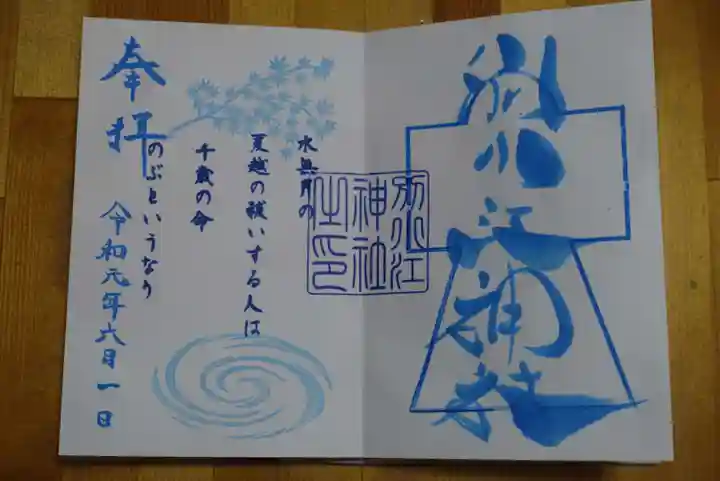 別小江神社
別小江
神社
之印
水無月の
夏越の祓いする人は
千歳の命
のぶというなり
奉拝
令和元年六月一日